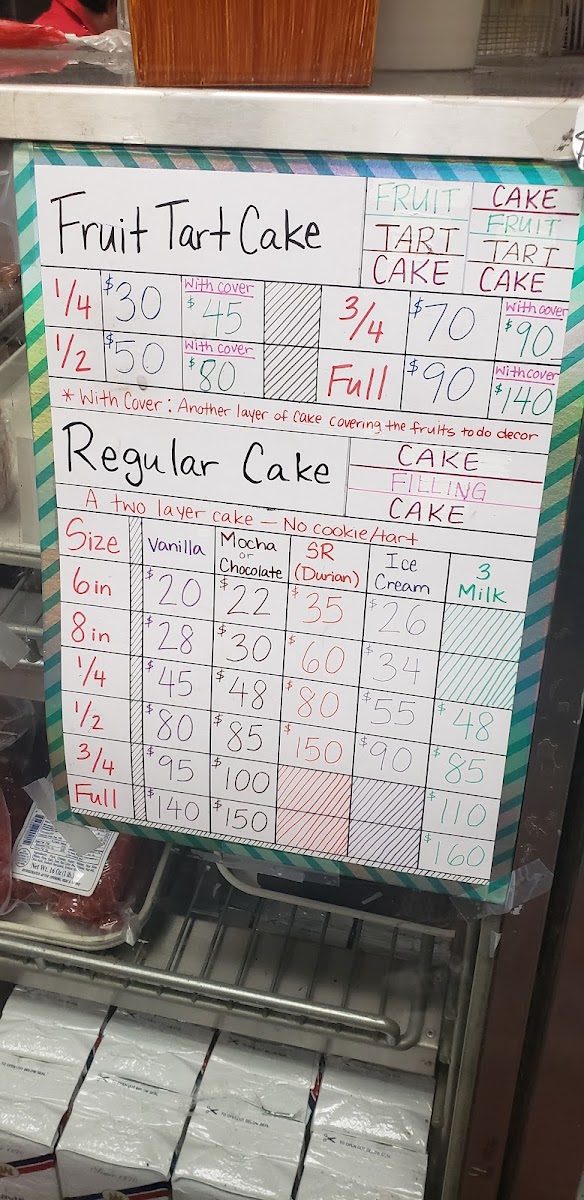 Fruit Tart Cake
FRUIT
TART
CAKE
CAKE
FRUIT
TART
CAKE
1/4 $30 With cover $45
3/4 $70 With cover $90
1/2 $50 With cover $80
Full $90 With cover $140
* With Cover: Another layer of cake covering the fruits to do decor
Regular Cake
CAKE
FILLING
CAKE
A two layer cake — No cookie/tart
Size Vanilla Mocha or Chocolate SR (Durian) Ice Cream 3 Milk
6in $20 $22 $35 $26
8in $28 $30 $60 $34
1/4 $45 $48 $80 $55 $48
1/2 $80 $85 $150 $90 $85
3/4 $95 $100 $110
Full $140 $150 $160
Net Wt. 16 Oz (1 lb.)